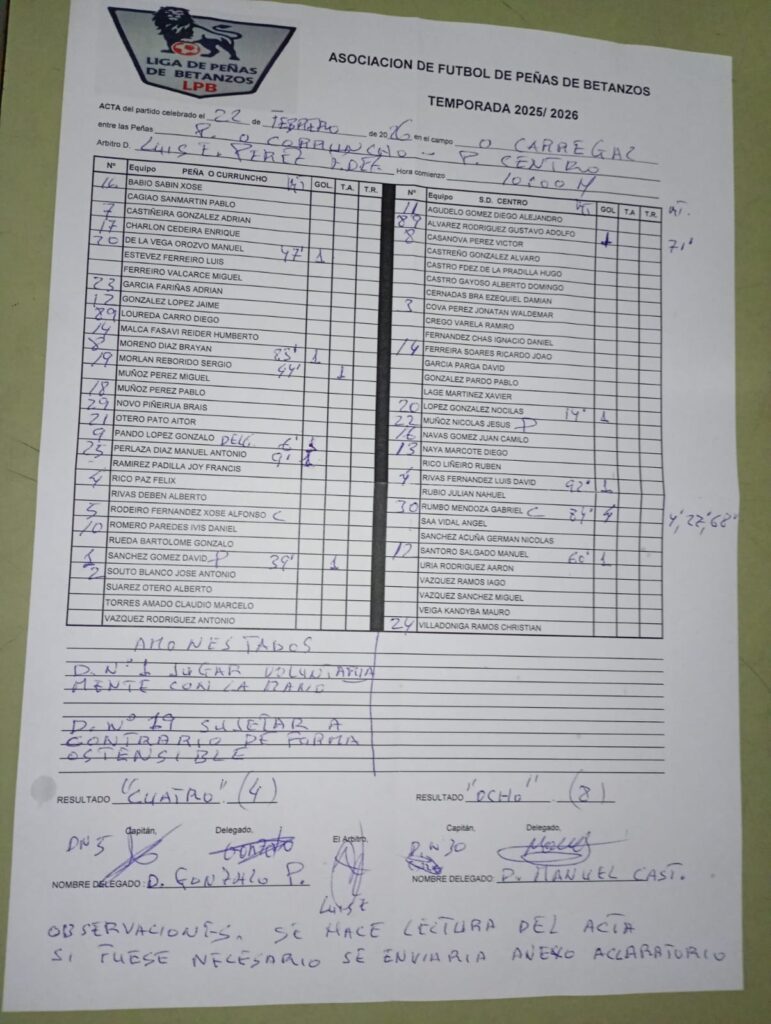 LIGA DE PEÑAS
DE BETANZOS
LPB
ASOCIACION DE FUTBOL DE PEÑAS DE BETANZOS
TEMPORADA 2025/ 2026
ACTA del partido celebrado el 22 de FEBRERO de 2026 en el campo O CARREGAL
entre las Peñas P. O CURRUNCHO - P. CENTRO
Arbitro D. LUIS F. PEREZ Hora comienzo 10:00 H
Nº Equipo PEÑA O CURRUNCHO GOL T.A. T.R.
16 BABIO SABIN XOSE
CAGIAO SANMARTIN PABLO
7 CASTIÑEIRA GONZALEZ ADRIAN
17 CHARLON CEDEIRA ENRIQUE
20 DE LA VEGA OROZVO MANUEL 47' 1
ESTEVEZ FERREIRO LUIS
FERREIRO VALCARCE MIGUEL
23 GARCIA FARIÑAS ADRIAN
12 GONZALEZ LOPEZ JAIME
89 LOUREDA CARRO DIEGO
14 MALCA FASAVI REIDER HUMBERTO
8 MORENO DIAZ BRAYAN 85' 1
19 MORLAN REBORIDO SERGIO 44' 1
MUÑOZ PEREZ MIGUEL
18 MUÑOZ PEREZ PABLO
29 NOVO PIÑEIRUA BRAIS
21 OTERO PATO AITOR
9 PANDO LOPEZ GONZALO DELG. 6' 1
25 PERLAZA DIAZ MANUEL ANTONIO 9' 1
RAMIREZ PADILLA JOY FRANCIS
4 RICO PAZ FELIX
RIVAS DEBEN ALBERTO
5 RODEIRO FERNANDEZ XOSE ALFONSO C
10 ROMERO PAREDES IVIS DANIEL
RUEDA BARTOLOME GONZALO
1 SANCHEZ GOMEZ DAVID P 39' 1
2 SOUTO BLANCO JOSE ANTONIO
SUAREZ OTERO ALBERTO
TORRES AMADO CLAUDIO MARCELO
VAZQUEZ RODRIGUEZ ANTONIO
Nº Equipo S.D. CENTRO GOL T.A. T.R.
11 AGUDELO GOMEZ DIEGO ALEJANDRO
89 ALVAREZ RODRIGUEZ GUSTAVO ADOLFO 1 71'
8 CASANOVA PEREZ VICTOR
CASTREÑO GONZALEZ ALVARO
CASTRO FDEZ DE LA PRADILLA HUGO
CASTRO GAYOSO ALBERTO DOMINGO
CERNADAS BRA EZEQUIEL DAMIAN
3 COVA PEREZ JONATAN WALDEMAR
CREGO VARELA RAMIRO
FERNANDEZ CHAS IGNACIO DANIEL
14 FERREIRA SOARES RICARDO JOAO
GARCIA PARGA DAVID
GONZALEZ PARDO PABLO
LAGE MARTINEZ XAVIER
20 LOPEZ GONZALEZ NOCILAS 14' 1
22 MUÑOZ NICOLAS JESUS P
16 NAVAS GOMEZ JUAN CAMILO
13 NAYA MARCOTE DIEGO
RICO LIÑEIRO RUBEN
7 RIVAS FERNANDEZ LUIS DAVID 92' 1
RUBIO JULIAN NAHUEL
30 RUMBO MENDOZA GABRIEL C 84' 4 4', 22', 68'
SAA VIDAL ANGEL
SANCHEZ ACUÑA GERMAN NICOLAS
12 SANTORO SALGADO MANUEL 60' 1
URIA RODRIGUEZ AARON
VAZQUEZ RAMOS IAGO
VAZQUEZ SANCHEZ MIGUEL
VEIGA KANDYBA MAURO
24 VILLADONIGA RAMOS CHRISTIAN
AMONESTADOS
D. Nº 1 JUGAR VOLUNTARIA
MENTE CON LA MANO
D. Nº 19 SUJETAR A
CONTRARIO DE FORMA
OSTENSIBLE
RESULTADO "CUATRO" (4) RESULTADO "OCHO" (8)
Capitán, Delegado, El Arbitro, Capitán, Delegado,
DN 5 D. Nº 30
NOMBRE DELEGADO: D. GONZALO P. NOMBRE DELEGADO: D. MANUEL CAST.
OBSERVACIONES. SE HACE LECTURA DEL ACTA
SI FUESE NECESARIO SE ENVIARIA ANEXO ACLARATORIO